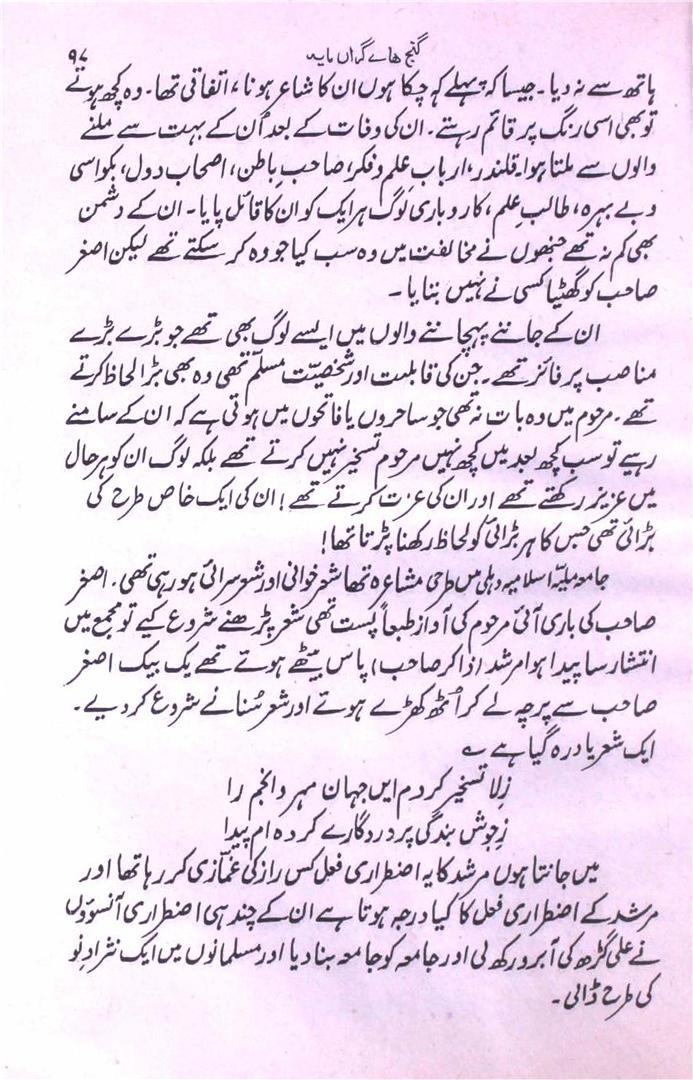 گنج ھائے گراں مایہ ۹۷
ہاتھ سے نہ دیا۔ جیسا کہ پہلے کہہ چکا ہوں ان کا شاعر ہونا، اتفاقی تھا۔ وہ کچھ ہوتے
تو بھی اسی رنگ پر قائم رہتے۔ ان کی وفات کے بعد اُن کے بہت سے ملنے
والوں سے ملتا ہوا۔ قلندر، ارباب علم و فکر، صاحب باطن، اصحاب دول، بکواسی
و بے بہرہ، طالب علم، کاروباری لوگ ہر ایک کو ان کا قائل پایا۔ ان کے دشمن
بھی کم نہ تھے جنھوں نے مخالفت میں وہ سب کیا جو وہ کر سکتے تھے لیکن اصغر
صاحب کو گھٹیا کسی نے نہیں بنایا۔
ان کے جاننے پہچاننے والوں میں ایسے لوگ بھی تھے جو بڑے بڑے
مناصب پر فائز تھے۔ جن کی قابلیت اور شخصیّت مسلّم تھی وہ بھی بڑا لحاظ کرتے
تھے۔ مرحوم میں وہ بات نہ تھی جو ساحروں یا فاتحوں میں ہوتی ہے کہ ان کے سامنے
رہیے تو سب کچھ بعد میں کچھ نہیں مرحوم تسخیر نہیں کرتے تھے بلکہ لوگ ان کو ہر حال
میں عزیز رکھتے تھے اور ان کی عزت کرتے تھے! ان کی ایک خاص طرح کی
بڑائی تھی جس کا ہر بڑائی کو لحاظ رکھنا پڑتا تھا!
جامعہ ملیّہ اسلامیہ دہلی میں طرحی مشاعرہ تھا شعر خوانی اور شعر سرائی ہو رہی تھی۔ اصغر
صاحب کی باری آئی مرحوم کی آواز طبعاً پست تھی شعر پڑھنے شروع کیے تو مجمع میں
انتشار سا پیدا ہوا مرشد (ذاکر صاحب) پاس بیٹھے ہوتے تھے یک بیک اصغر
صاحب سے پرچہ لے کر اُٹھ کھڑے ہوتے اور شعر سُنانے شروع کر دیے۔
ایک شعر یاد رہ گیا ہے ؎
زِلا تسخیر کردم ایں جہان مہر و انجم را
زِجوش بندگی پروردگارے کردہ ام پیدا
میں جانتا ہوں مرشد کا یہ اضطراری فعل کس راز کی غمّازی کر رہا تھا اور
مرشد کے اضطراری فعل کا کیا درجہ ہوتا ہے ان کے چند ہی اضطراری آنسوؤں
نے علی گڑھ کی آبرو رکھ لی اور جامعہ کو جامعہ بنا دیا اور مسلمانوں میں ایک نثراد نو
کی طرح ڈالی۔